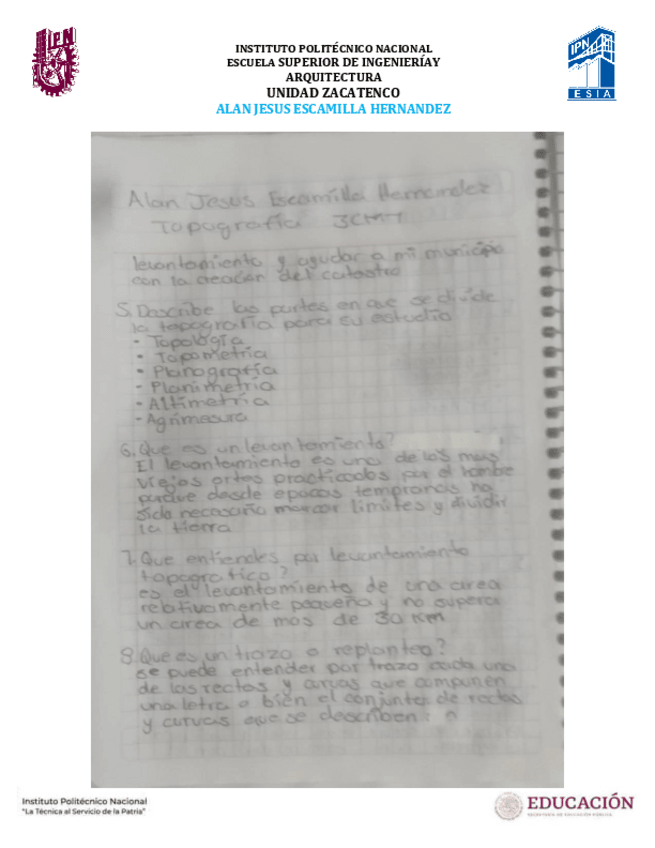 INSTITUTO POLITÉCNICO NACIONAL
ESCUELA SUPERIOR DE INGENIERÍAY
ARQUITECTURA
UNIDAD ZACATENCO
ALAN JESUS ESCAMILLA HERNANDEZ
IPN
IPN
ESIA
Alan Jesus Escamilla Hernandez
Topografía 3CM1
levantamiento y ayudar a mi municipio
con la creacion del catastro
5. Describe las partes en que se divide
la topografía para su estudio
- Topología
• Topometría
• Planografía
- Planimetría
• Altimetría
- Agrimesura
6. Que es un levantamiento?
El levantamiento es una de las mas
viejas artes practicadas por el hombre
porque desde epocas tempranas ha
sido necesario marcar limites y dividir
la tierra
7. Que entiendes por levantamiento
topografico?
es el levantamiento de una area
relativamente pequeña y no supera
un area de mas de 30 km
8. Que es un trazo o replanteo?
se puede entender por trazo cada una
de las rectas y curvas que componen
una letra o bien el conjunto de rectas
y curvas que se describen o
Instituto Politécnico Nacional
"La Técnica al Servicio de la Patria"
EDUCACIÓN
SECRETARÍA DE EDUCACIÓN PÚBLICA